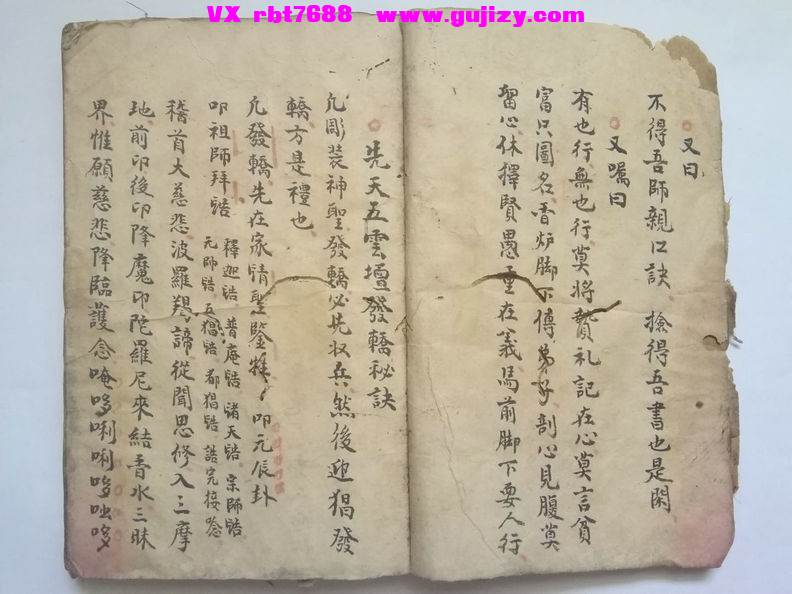 VX rbt7688 www.gujizy.com
又曰
不得吾師親口訣 搶得吾書也是閑
又嘱曰
有也行無也行莫將贄礼記在心莫言貧
富只圖名香炉脚下傳弟子剖心見腹莫
留心休擇賢愚重在義馬前脚下要人行
先天五雲壇發轎秘訣
凢彫装神聖發轎必先收兵然後迎猖發
轎方是禮也
凢發轎先在家請聖鑒牲 叩元辰卦
叩祖師拜誥 釋迦誥 普庵誥 諸天誥 宗師誥
元帥誥 五猖誥 都猖誥 誥完接念
稽首大慈悲波羅羯諦從聞思修入三摩
地前印後印降魔印陀羅尼來結香水三昧
界惟願慈悲降臨護念唵哆唎唎哆吔哆